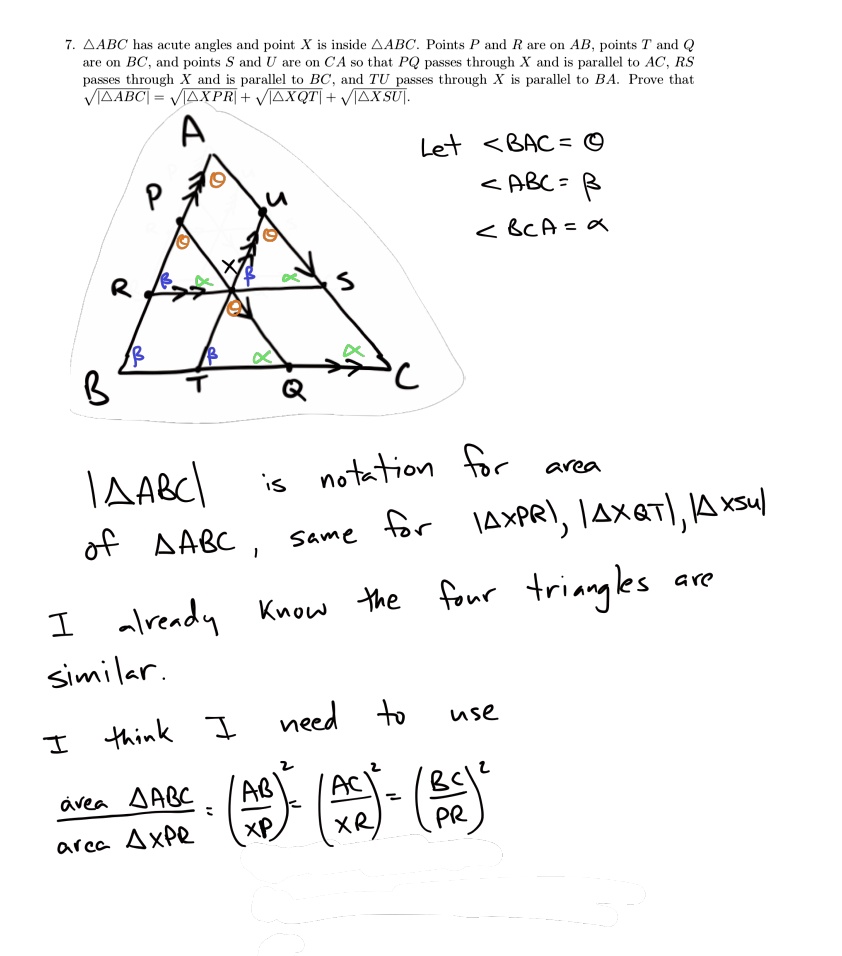 7. △ABC has acute angles and point X is inside △ABC. Points P and R are on AB, points T and Q
are on BC, and points S and U are on CA so that PQ passes through X and is parallel to AC, RS
passes through X and is parallel to BC, and TU passes through X is parallel to BA. Prove that
√|△ABC| = √|△XPR| + √|△XQT| + √|△XSU|.
A
Let <BAC = θ
P θ U
<ABC = β
θ θ
<BCA = α
X
R β α β α S
θ
β β α α
B T Q C
|△ABC| is notation for area
of △ABC, same for |△XPR|, |△XQT|, |△XSU|
I already know the four triangles are
similar.
I think I need to use
area △ABC / area △XPR = (AB/XP)² = (AC/XR)² = (BC/PR)²